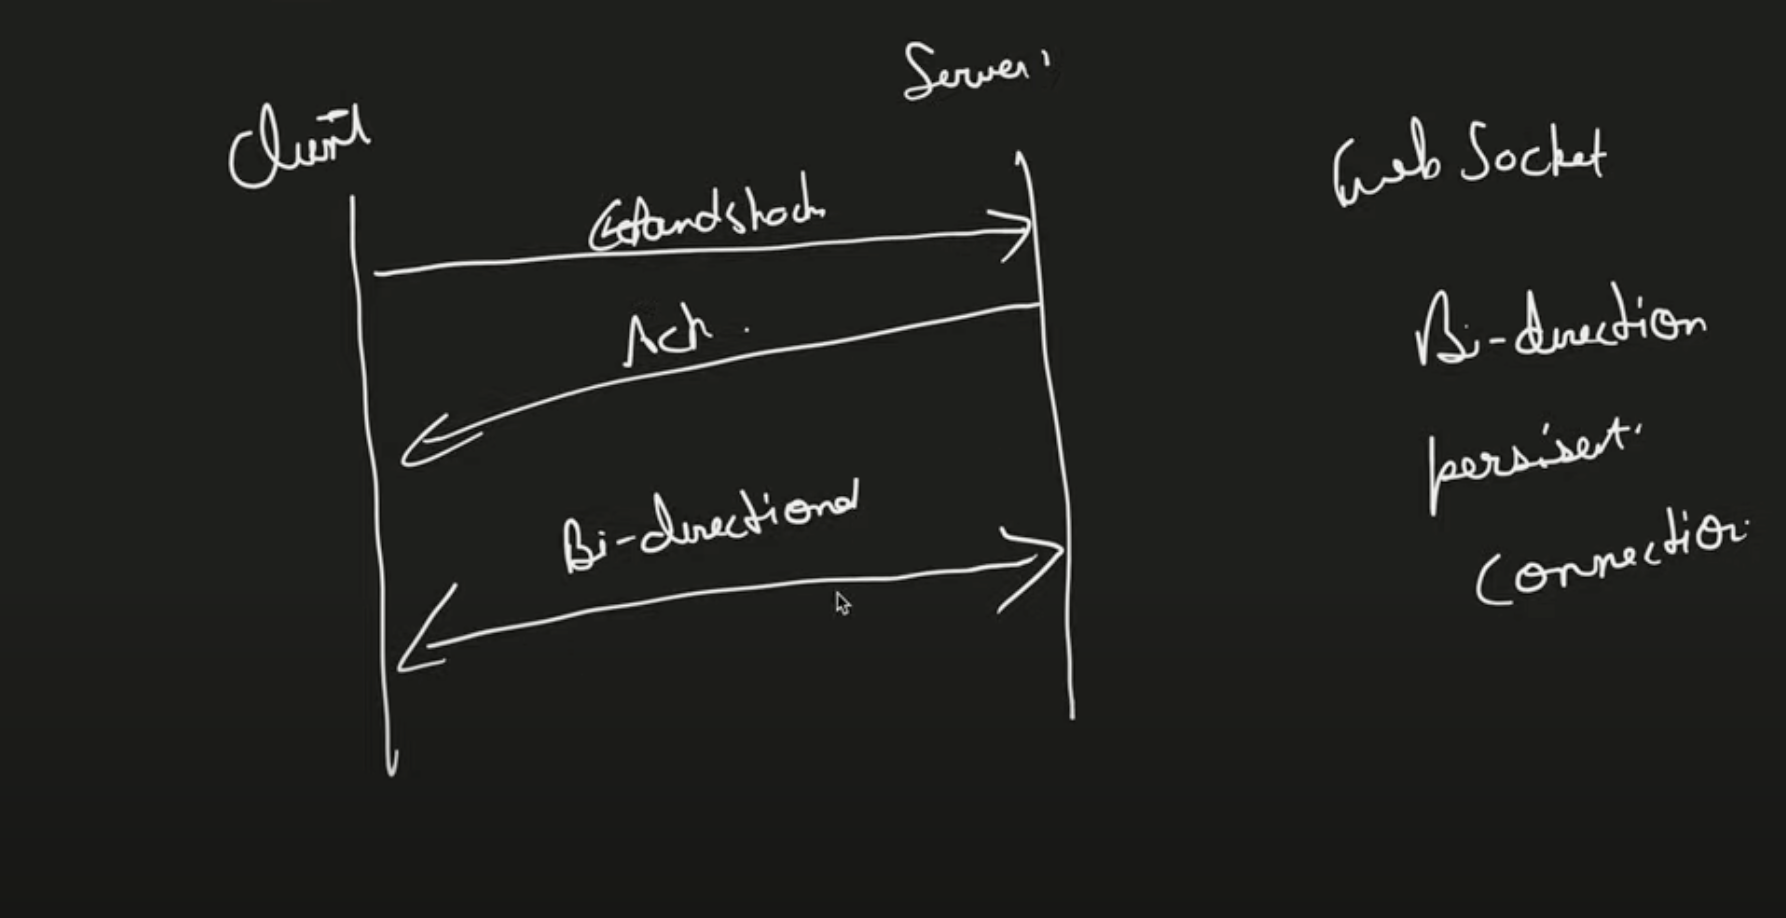 Client
Server
Handshack
Ack.
Bi-directional
Web Socket
Bi-direction
persisent.
Connection.